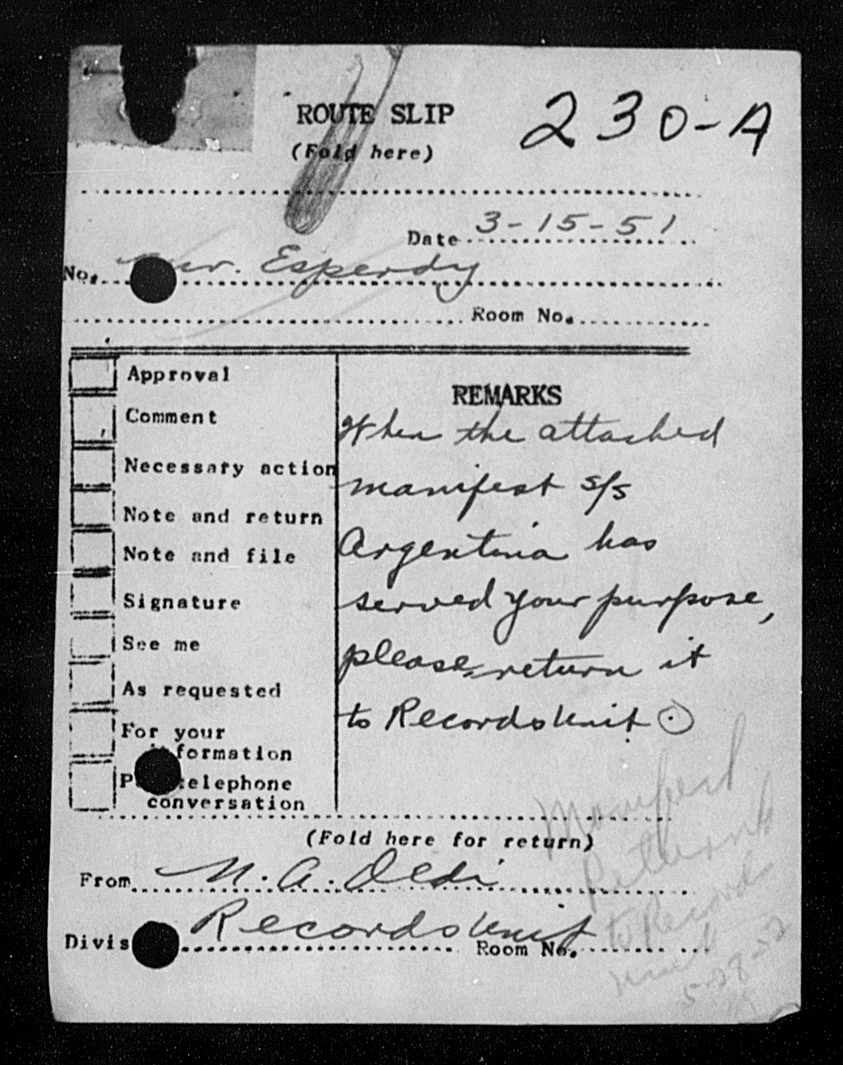 ROUTE SLIP 230-A
(Fold here)
Date 3-15-51
No. Mr. Esperdy
Room No.
Approval
Comment
Necessary action
Note and return
Note and file
Signature
See me
As requested
For your
formation
elephone
conversation
REMARKS
When the attached
manifest s/s
Argentina has
served your purpose,
please return it
to Records Unit
(Fold here for return)
From N. A.
Divis Records Unit
Room No.
Manifest
Returned
to Records
Unit
5-28-52